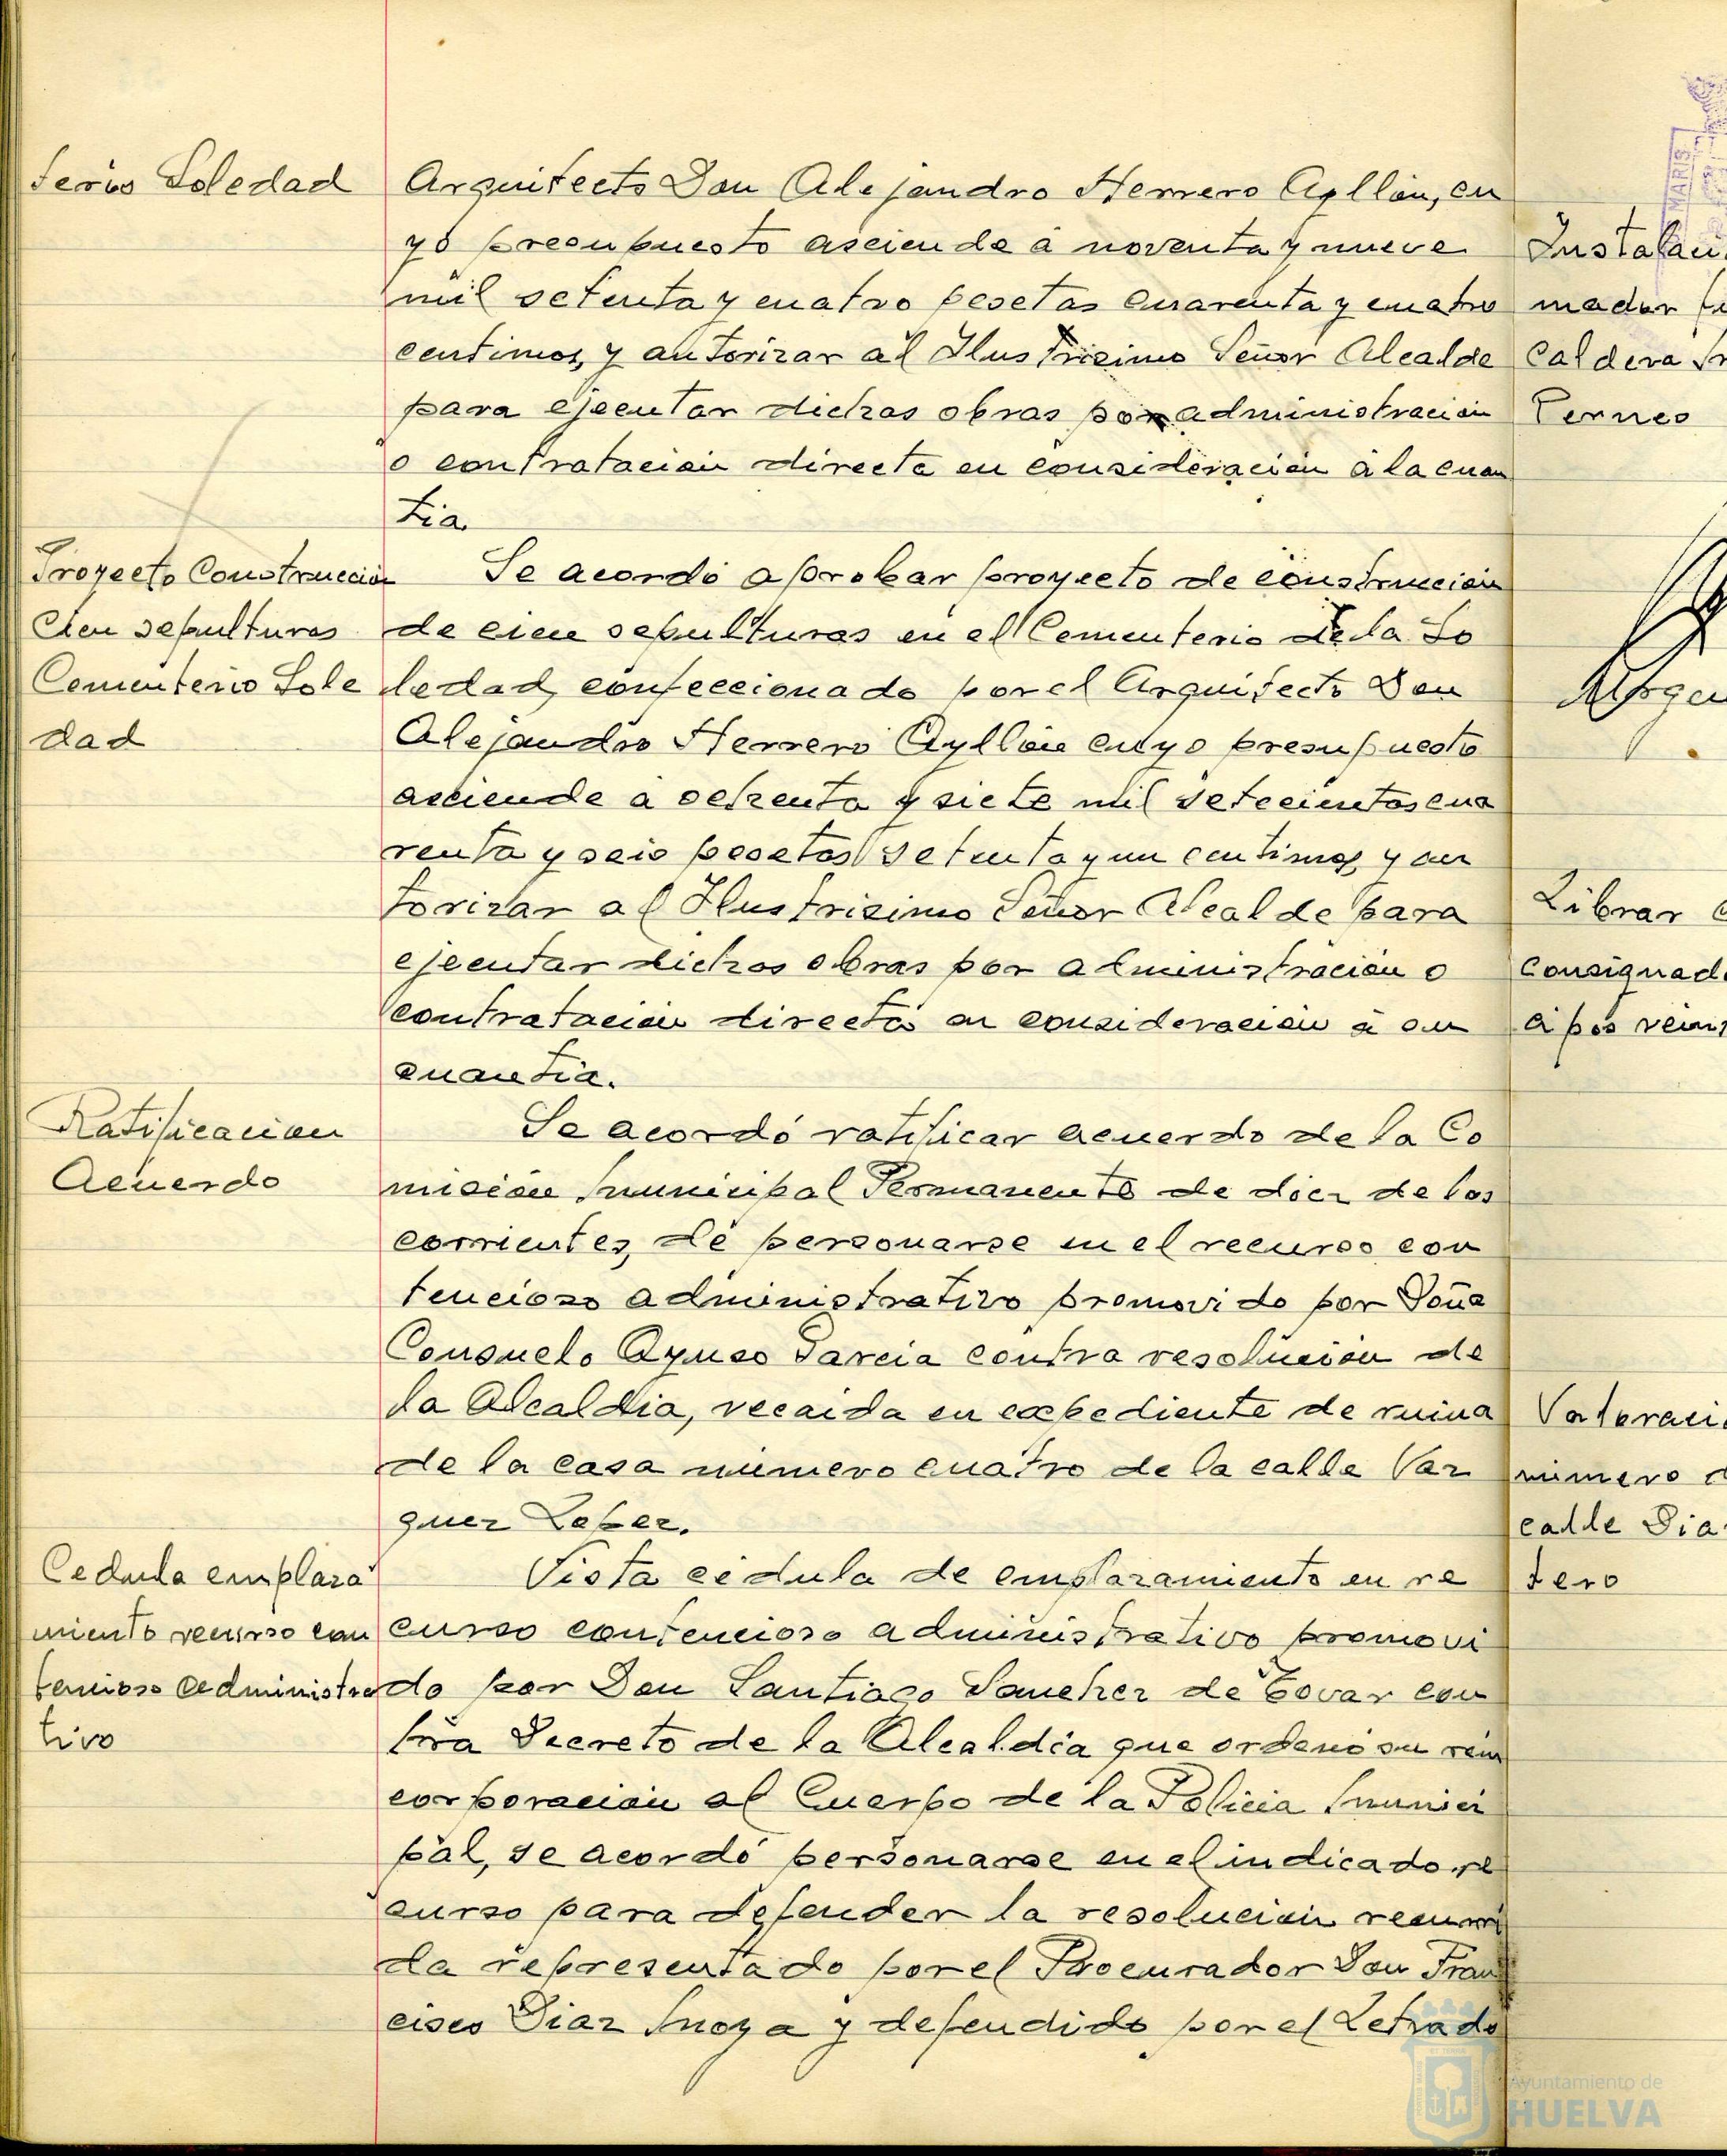 terio Soledad
Arquitecto Don Alejandro Herrero Ayllón, cu
yo presupuesto asciende a noventa y nueve
mil setenta y cuatro pesetas cuarenta y cuatro
centimos, y autorizar al Ilustrisimo Señor Alcalde
para ejecutar dichas obras por administración
o contratación directa en consideración a la cuan
tia.
Proyecto Construcción
Cien sepulturas
Cementerio Sole
dad
Se acordó aprobar proyecto de construcion
de cien sepulturas en el Cementerio de la So
ledad, confeccionado por el Arquitecto Don
Alejandro Herrero Ayllón cuyo presupuesto
asciende a ochenta y siete mil setecientas cua
renta y seis pesetas setenta y un centimos, y au
torizar al Ilustrisimo Señor Alcalde para
ejecutar dichas obras por administración o
contratación directa en consideración a su
cuantia.
Ratificacion
Acuerdo
Se acordó ratificar acuerdo de la Co
misión Municipal Permanente de diez de los
corrientes, de personarse en el recurso con
tencioso administrativo promovido por Doña
Consuelo Ayuso Garcia contra resolución de
la Alcaldia, recaida en expediente de ruina
de la casa número cuatro de la calle Vaz
quez Lopez.
Cedula emplaza
miento recurso con
tencioso administra
tivo
Vista cédula de emplazamiento en re
curso contencioso administrativo promovi
do por Don Santiago Sanchez de Tovar con
tra Decreto de la Alcaldía que ordenó su rein
corporación al Cuerpo de la Policia Munici
pal, se acordó personarse en el indicado re
curso para defender la resolución recurri
da representado por el Procurador Don Fran
cisco Diaz Moya y defendido por el Letrado
Instalaci
mador
Caldera
Perneo
Librar
Consignad
Valoraci
número
calle Dia
tero
Ayuntamiento de
HUELVA